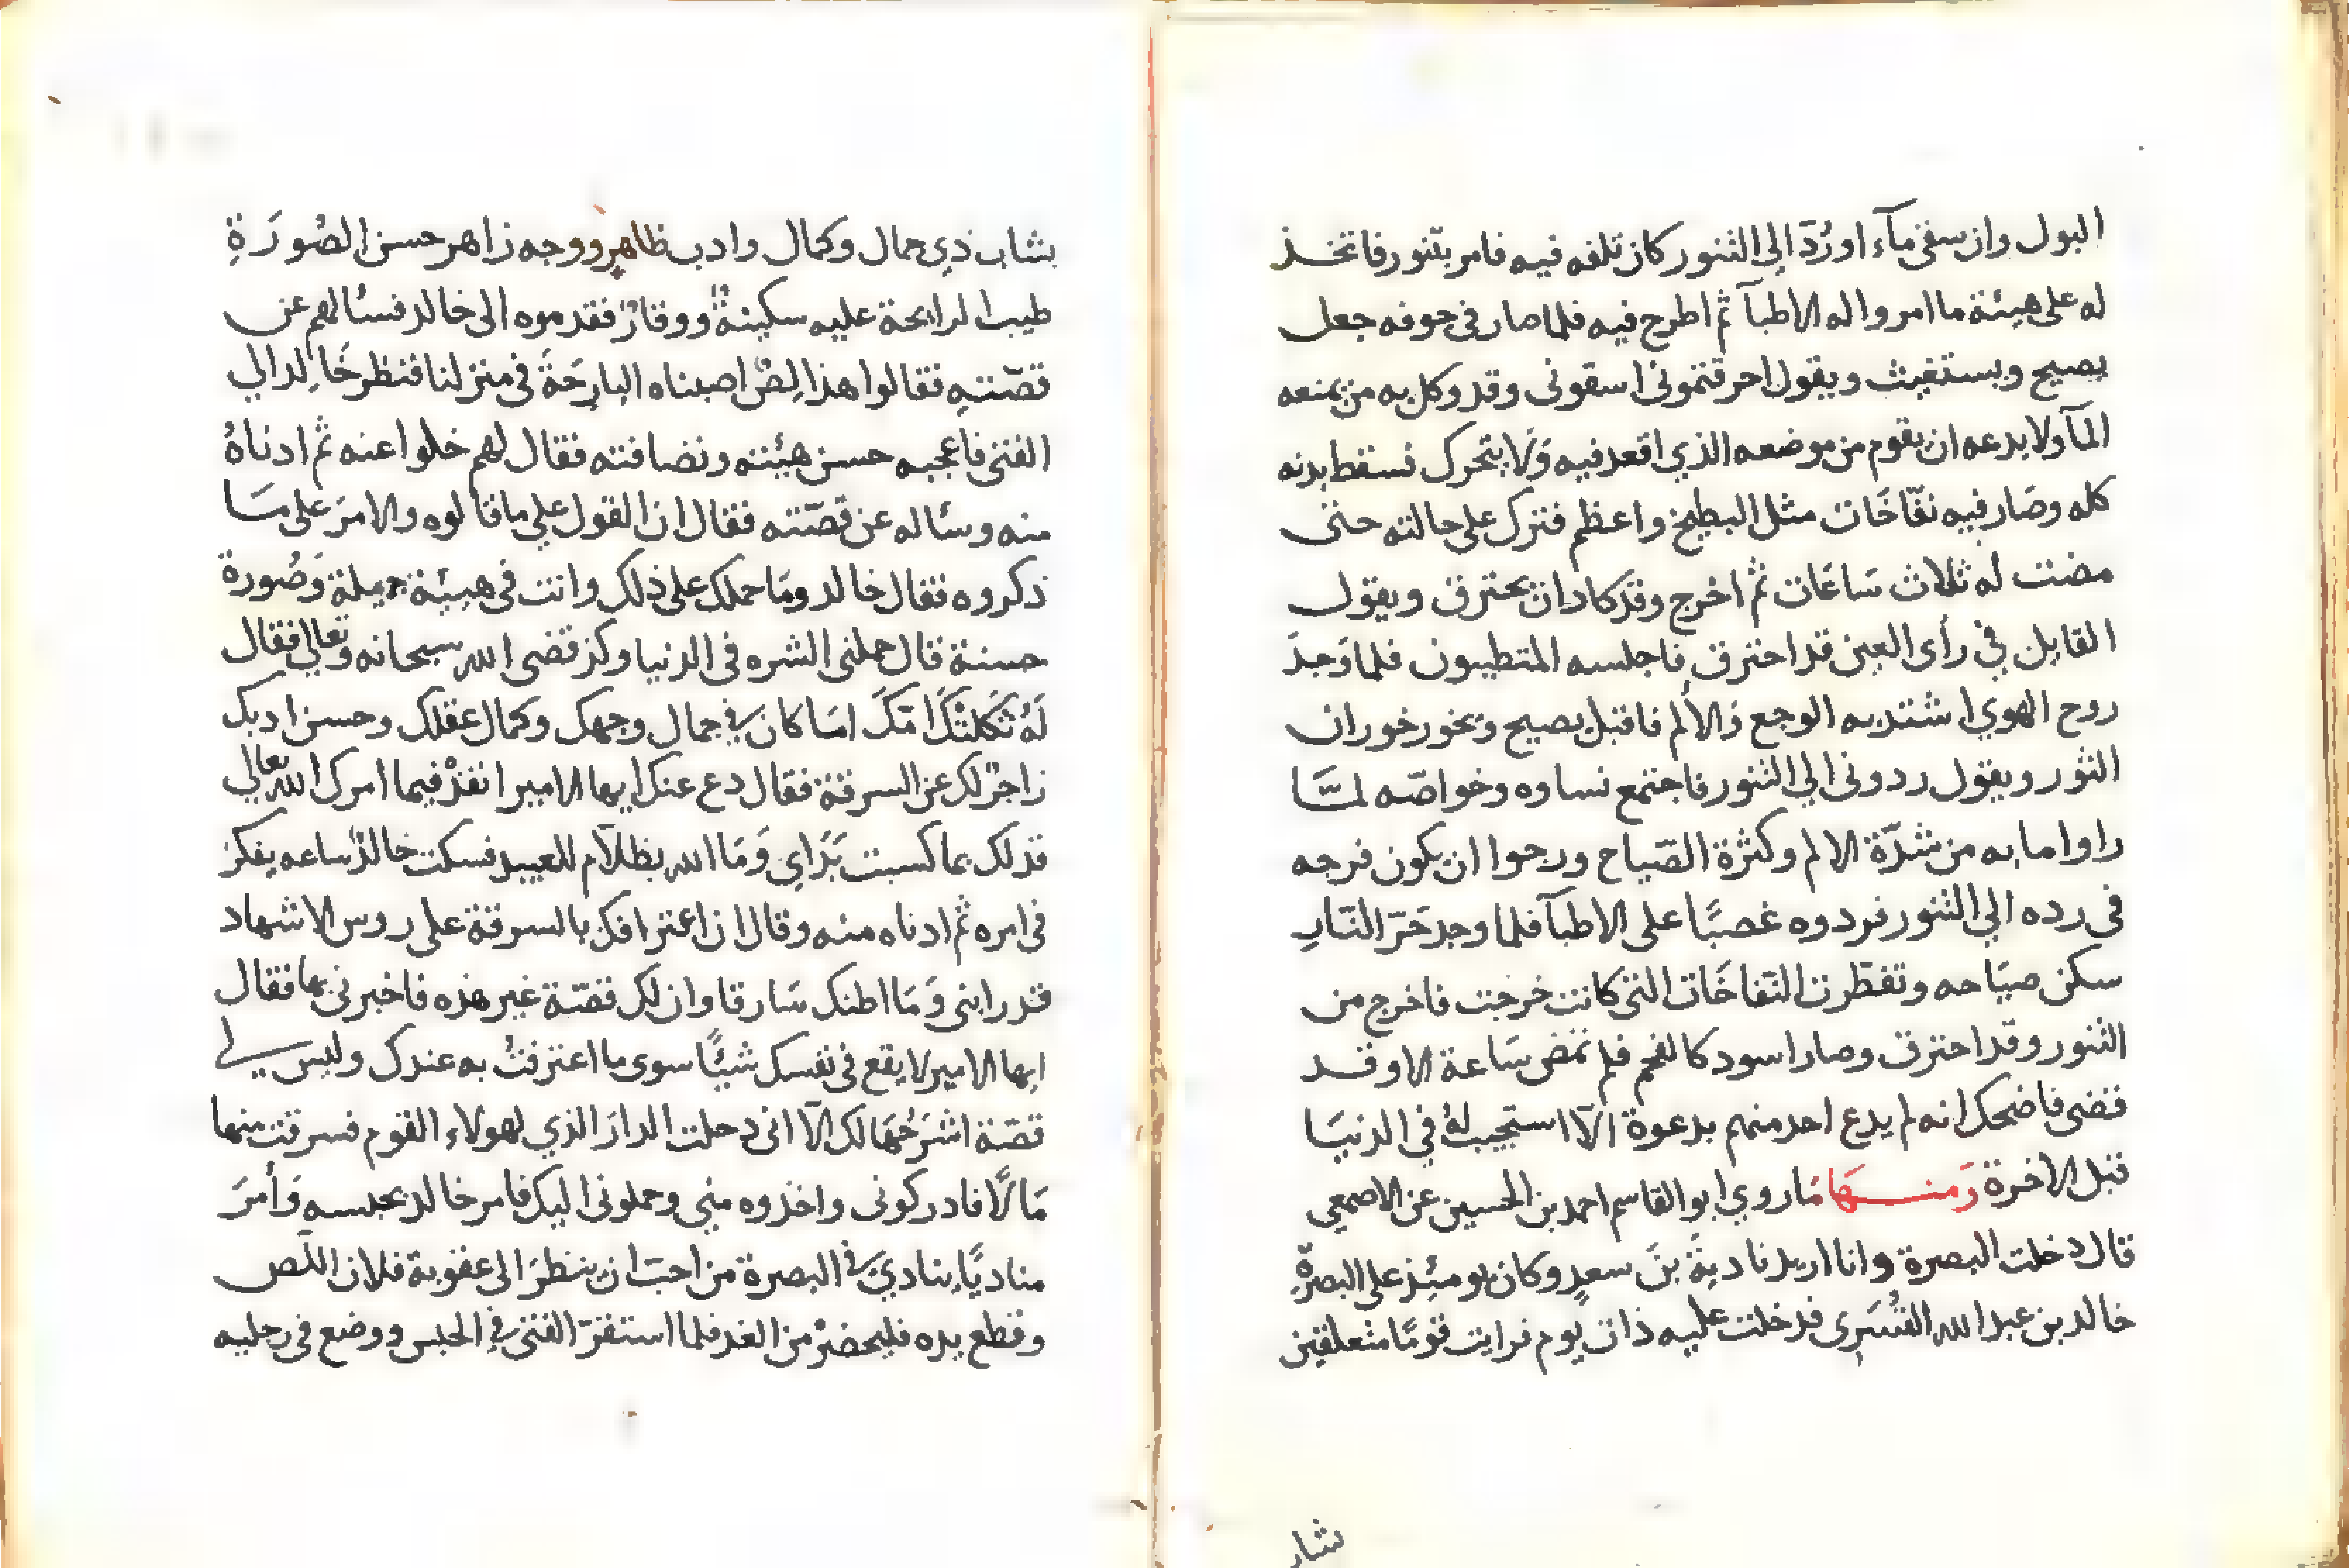 البول وان سقي مآء او رُدّ الى التنور كان تلفه فيه فامر بتنور فاتخذ
له على هيئة ما امروا له الاطبآ ثم اطرح فيه فلما صار فى جوفه جعل
يصيح ويستغيث ويقول احرقتمونى اسقونى وقد وكل به من يمنعه
المآ ولا يدعه ان يقوم من موضعه الذي اقعد فيه وَلا يتحرك فسقط بدنه
كله وصَار فيه نفّاخَات مثل البطيخ واعظم فترك على حالته حتى
مضت له ثلاث سَاعَات ثم اخرج وقد كاد ان يحترق ويقول
القايل في رأى العين قد احترق فاجلسه المتطببون فلما وَجدَ
روح الهوي اشتد به الوجع والألم فاقبل يصيح ويخور خوران
الثور ويقول ردونى الي التنور فاجتمع نساوه وخواصّه لمّا
راوا ما به من شدّة الالم وكثرة الصّياح ورجوا ان يكون فرجه
فى رده الي التنور فردوه غصبًا على الاطبآ فلما وجد حَرّ النّارِ
سكن صيَاحه وتفطّرت النّفاخَات التى كانت خرجت فاخرج من
التنور وقد احترق وصار اسود كالفحم فلم تمض سَاعة الا وقد
قضى فاضحك انه لم يدع احد منهم بدعوة الّا استجيب لهُ في الدنيَا
قبل الاخرة وَمنهَا مَا روي ابو القاسم احمد بن الحسين عن الاصمعي
قال دخلت البصرة وانا اريد نادية بنَ سعدٍ وكان يومئِذ على البصرةِ
خالد بن عبد الله القُسَرى فدخلت عليه ذات يوم فرايت قومًا متعلقين
شاب
بشاب ذي جمال وكمال وادب ظاهرٍ ووجه زاهر حسن الصُورَةِ
طيب الرايحة عليه سكينةٌ ووقارٌ فقدموه الى خالد فسُالهم عن
قصّتهِ فقالوا هذا لِصٌ اصبناه البارِحَةَ فى منزلنا فنظر خَالِد الي
الفتى فاعجبه حسن هيئته ونضافته فقال لهم خلوا عنه ثم ادناهُ
منه وسئاله عن قصّته فقال ان القول علي ما قالوه والامرَ على مَا
ذكروه فقال خالد ومَا حملك على ذلك وانت فى هيئة جميلة وَصُورة
حسنة قال حملنى الشره فى الدنيا وكذ قضى الله سبحانه وتعالي فقال
لَهُ ثَكَلَتْكَ امّكَ امَا كان في جمال وجهك وكمال عقلك وحسن ادبك
زاجرٌ لك عن السرقة فقال دع عنك ايها الامير انفذْ فيما امرك الله تعالي
فدلك بما كسبت يَدَاي وَمَا الله بظلّامٍ للعبيد فسكت خالدٌ ساعه يفكر
فى امره ثم ادناه منه وقال ان اعترافك بالسرقة على روس الاشهاد
قد رابنى وَمَا اظنك سَارقا وان لك قصّة غير هذه فاخبرنى بها فقال
ايها الامير لا يقع فى نفسك شيئًا سوى ما اعترفتُ به عندك وليس لي
قصّة اشرَحُهَا لك الّا انى دخلت الدار الذي لهولاء القوم فسرقت منها
مَالًا فادركونى واخذوه منّي وحملونى اليك فامر خالد بحبسه وَأمرَ
مناديًا ينادي في البصرة من احبّ ان ينظرَ الى عقوبة فلان اللّص
وقطع يده فليحضرْ من الغد فلما استقرّ الفتى في الحبس ووضع فى رجليه